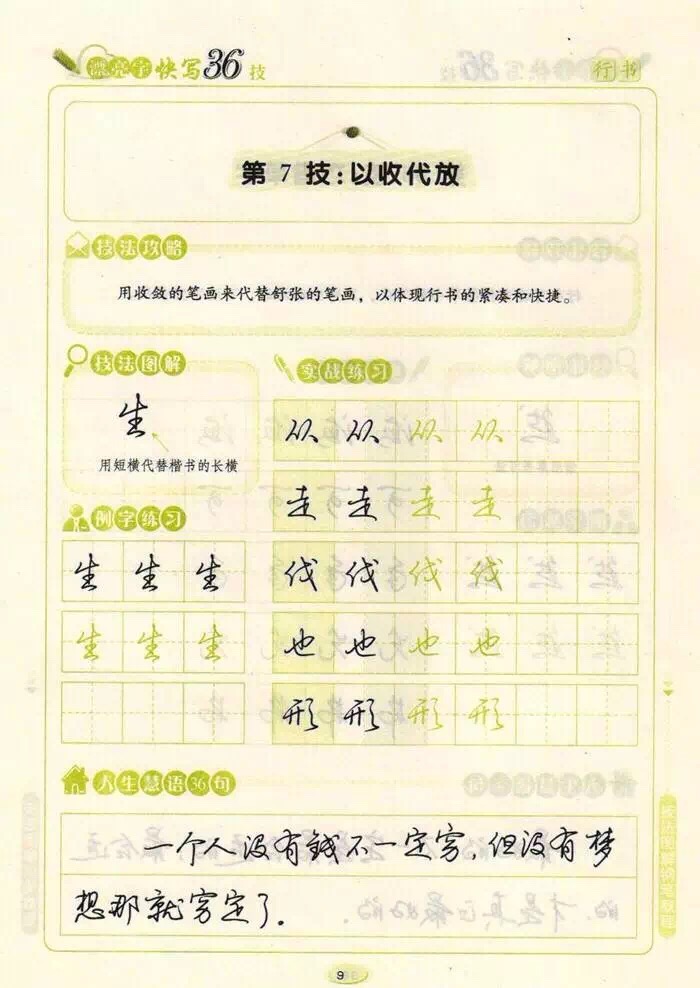 漂亮字快写36技
行书
第7技:以收代放
技法攻略
用收敛的笔画来代替舒张的笔画，以体现行书的紧凑和快捷。
技法图解
生
用短横代替楷书的长横
实战练习
从 从 从 从
走 走 走 走
例字练习
生 生 生
伐 伐 伐 伐
生 生 生
也 也 也 也
形 形 形 形
人生慧语36句
一个人没有錢不一定穷,但没有梦
想那就穷定了.
技法图解钢笔教程
9